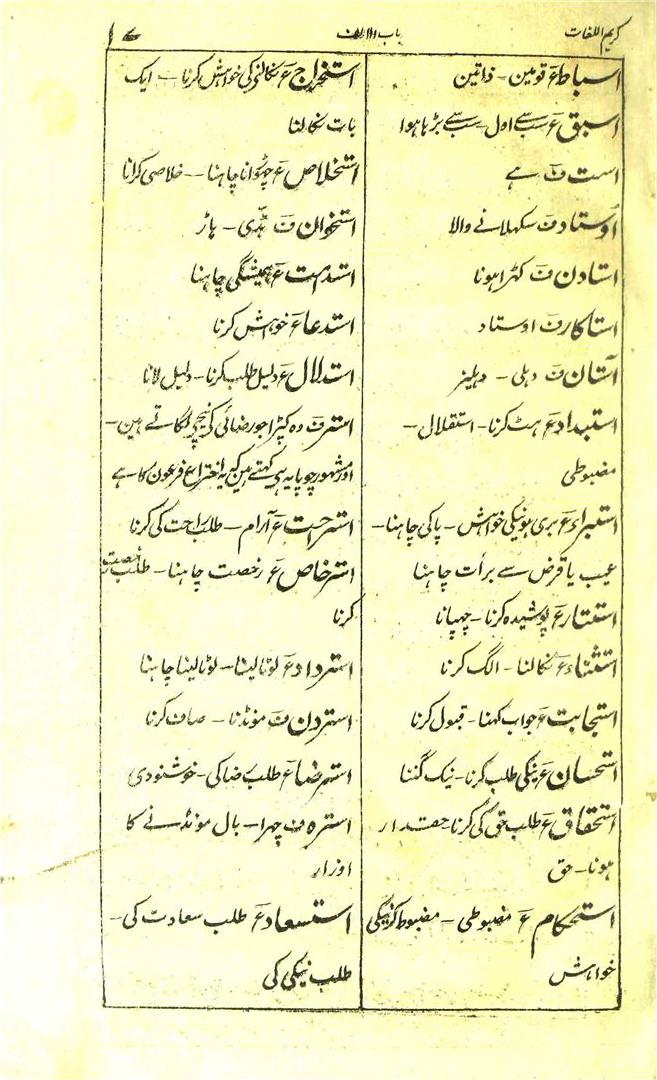 کریم اللغات
باب الالف
۱۷
اسباط ع قومین - ذاتین
اسبق ع سب سے اول - سب سے بڑہا ہوا
است ف ہے
اوستاد ف سکہلانے والا
استادن ف کہڑا ہونا
استاکار ف اوستاد
آستان ف دہلی - دہلیز
استبداد ع ہٹ کرنا - استقلال -
مضبوطی
استبراء ع بری ہونیکی خواہش - پاکی چاہنا -
عیب یا قرض سے برأت چاہنا
استتار ع پوشیدہ کرنا - چہپانا
استثناء ع نکالنا - الگ کرنا
استجابت ع جواب کہنا - قبول کرنا
استحسان ع نیکی طلب کرنا - نیک گننا
استحقاق ع طلب حق کی کرنا - حقدار
ہونا - حق
استحکام ع مضبوطی - مضبوط کرنیکی
خواہش
استخراج ع نکالنی کی خواہش کرنا - ایک
بات نکالنا
استخلاص ع چہڑوانا چاہنا - خلاصی کرانا
استخوان ف ہڈی - ہاڑ
استدامت ع ہمیشگی چاہنا
استدعا ع خواہش کرنا
استدلال ع دلیل طلب کرنا - دلیل لانا
استر ف وہ کپڑا جو رضائی کے نیچے لگاتے ہین -
اور مشہور چوپایہ ہی کہتے ہین کہ یہ اختراع فرعون کا ہے
استراحت ع آرام - طلب راحت کی کرنا
استرخاص ع رخصت چاہنا - طلب رخصت
کرنا
استرداد ع لوٹا لینا - لوٹا لینا چاہنا
استردن ف مونڈنا - صاف کرنا
استرضا ع طلب رضا کی - خوشنودی
استرہ ف چہرا - بال مونڈنے کا
اوزار
استسعاد ع طلب سعادت کی -
طلب نیکی کی